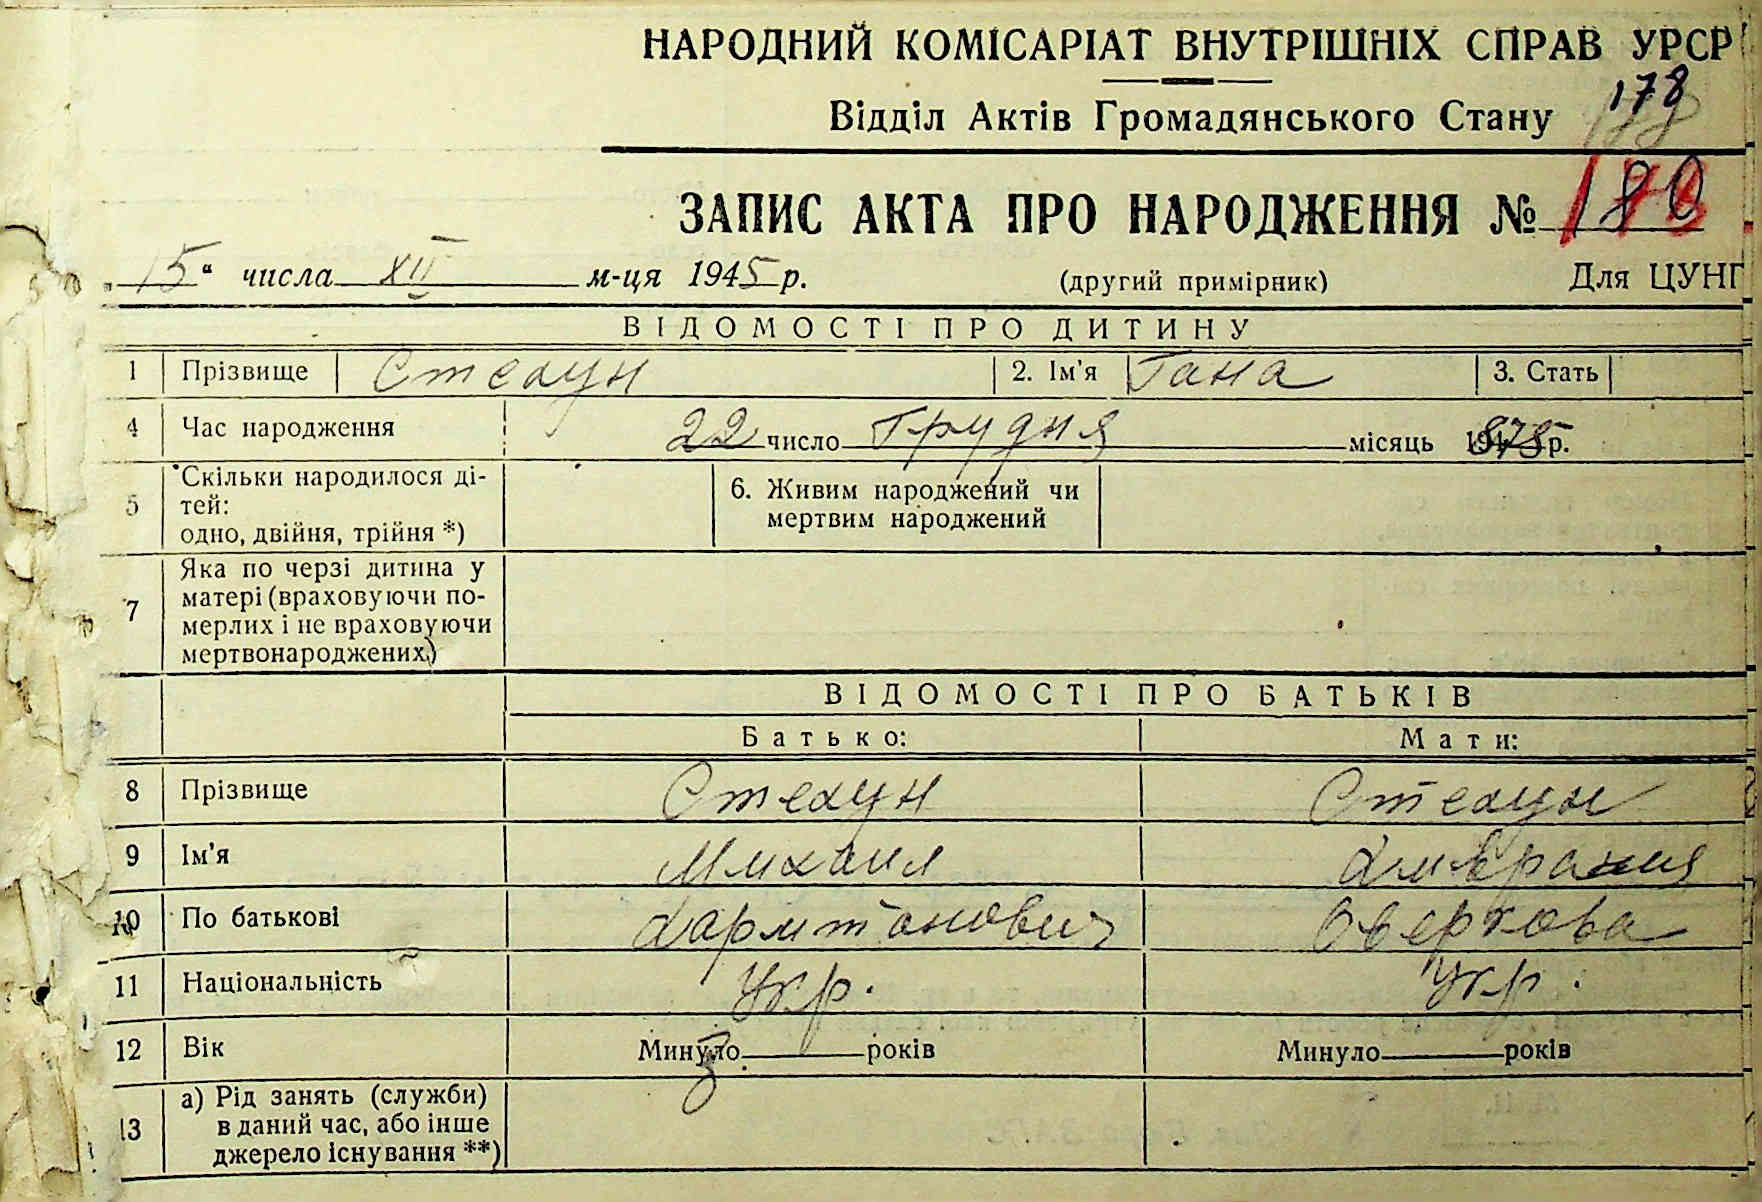 НАРОДНИЙ КОМІСАРІАТ ВНУТРІШНІХ СПРАВ УРСР
Відділ Актів Громадянського Стану 178
ЗАПИС АКТА ПРО НАРОДЖЕННЯ № 180
„15“ числа XII м-ця 1945 р. (другий примірник) Для ЦУНГ
ВІДОМОСТІ ПРО ДИТИНУ
1 Прізвище Стецун 2. Ім'я Гана 3. Стать
4 Час народження 22 число Грудня місяць 1875 р.
5 Скільки народилося ді-
тей:
одно, двійня, трійня *)
6. Живим народжений чи
мертвим народжений
7 Яка по черзі дитина у
матері (враховуючи по-
мерлих і не враховуючи
мертвонароджених)
ВІДОМОСТІ ПРО БАТЬКІВ
Батько: Мати:
8 Прізвище Стецун Стецун
9 Ім'я Михаил
10 По батькові Оверкова
11 Національність Укр. Укр.
12 Вік Минуло років Минуло років
13 а) Рід занять (служби)
в даний час, або інше
джерело існування **)